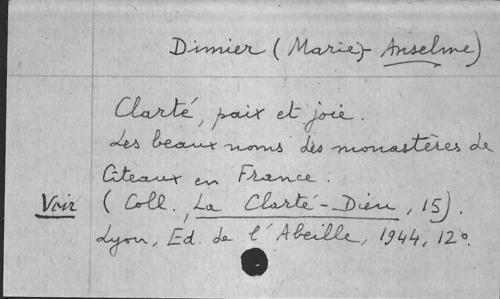 Dimier (Marie)- Anselme)
Clarté, paix et joie.
Les beaux noms des monastères de
Cîteaux en France.
Voir (Coll., La Clarté-Dieu, 15).
Lyon, Ed. de l'Abeille, 1944, 12°.